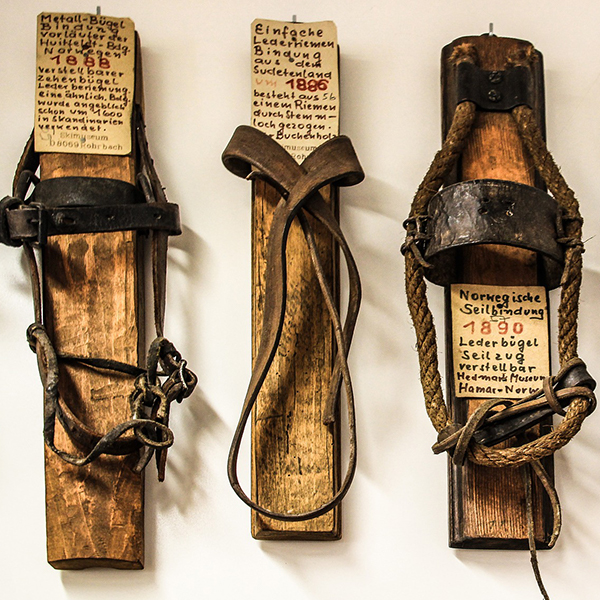 Metall-Bügel
Bindung
vorläufer der
Huitfeldt-Bdg.
Norwegen
1888
verstellbarer
Zehenbügel
Lederberiemung
eine ähnlich. Bdg.
wurde angeblich
schon um 1600
in Skandinavien
verwendet.
Skimuseum
D8069 Rohrbach
Einfache
Lederriemen
Bindung
aus dem
Sudetenland
um 1886
besteht aus
einem Riemen
durch Stemm-
loch gezogen.
Buchenholz
museum
Norwegische
Seilbindung
1890
Lederbügel
Seilzug
verstellbar
Hedmark Museum
Hamar-Norw